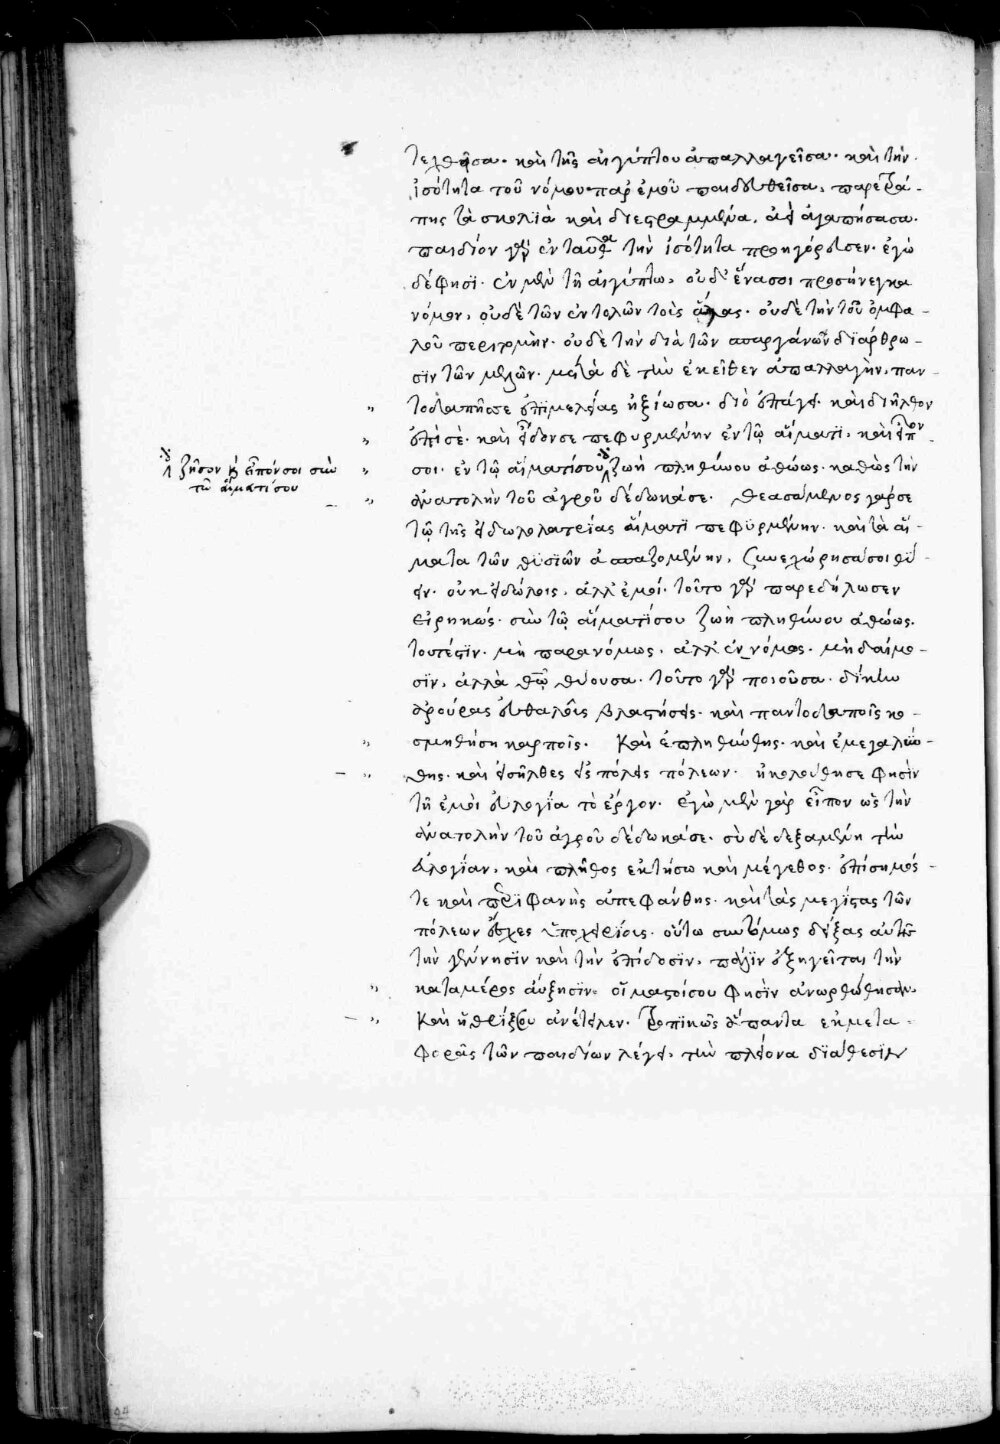 τεχθεῖσα· καὶ τῆς αἰγύπτου ἀπαλλαγεῖσα· καὶ τὴν
ἰσότητα τοῦ νόμου παρ' ἐμοῦ παιδευθεῖσα, παρετρά-
πης τὰ σκολιὰ καὶ διεστραμμένα, ἀεὶ ἀγαπήσασα·
παιδίον γὰρ ἐνταῦθα τὴν ἰσότητα προσηγόρευσεν· ἐγὼ
δέ φησϊ· ἐν μὲν τῇ αἰγύπτω, οὐδὲ ἕνα σοι προσήνεγκα
νόμον, οὐδὲ τῶν ἐντολῶν τοὺς ἅλας· οὐδὲ τὴν τοῦ ὀμφα-
λοῦ περιτομὴν· οὐδὲ τὴν διὰ τῶν σπαργάνων διάρθρω-
σϊν τῶν μελῶν· μετὰ δὲ τὴν ἐκεῖθεν ἀπαλλαγὴν, παν-
τοδαπῆς σε ἐπϊμελείας ἠξίωσα· διὸ ἐπάγει· καὶ διῆλθον
ἐπὶ σὲ· καὶ εἶδόν σε πεφυρμένην ἐν τῷ αἵματϊ, καὶ εἶπόν
σοι· ἐν τῷ αἵματί σου ζωὴ πληθύνου ἀθώως· καθὼς τὴν
ἀνατολὴν τοῦ ἀγροῦ δέδωκά σε· θεασάμενος γάρ σε
τῷ τῆς εἰδωλολατρείας αἵματϊ πεφϋρμένην· καὶ τὰ αἵ-
ματα τῶν θϋσϊῶν ἀσπαζομένην, συνεχώρησά σοι θύ-
ειν· οὐκ εἰδώλοις, ἀλλ' ἐμοί· τοῦτο γὰρ παρεδήλωσεν
εἰρηκώς· σὺν τῷ αἵματί σου ζωὴ πληθύνου ἀθώως·
τουτέστϊν· μὴ παρανόμως, ἀλλ' ἐννόμως· μὴ δαίμο-
σϊν, ἀλλὰ θεῷ θύουσα· τοῦτο γὰρ ποιοῦσα· δίκην
ἀρούρας εὐθαλοῦς βλαστήσεις· καὶ παντοδαποῖς κο-
σμηθήσῃ καρποῖς· Καὶ ἐπληθύνθης· καὶ ἐμεγαλύν-
θης· καὶ εἰσῆλθες εἰς πόλεις πόλεων· ἠκολούθησε φησὶν
τῇ ἐμοὶ εὐλογία τὸ ἔργον· ἐγὼ μὲν γὰρ εἶπον ὡς τὴν
ἀνατολὴν τοῦ ἀγροῦ δέδωκά σε· σὺ δὲ δεξαμένη τὴν
εὐλογίαν, καὶ πλῆθος ἐκτήσω καὶ μέγεθος· ἐπίσημός
τε καὶ περϊφανὴς ἀπεφάνθης· καὶ τὰς μεγίστας τῶν
πόλεων ἔσχες ὑποχειρίους· οὕτω συντόμως δείξας αὐτῆς
τὴν γέννησϊν καὶ τὴν ἐπίδοσϊν, πάλϊν ἐξηγεῖται τὴν
κατα μέρος αὔξησϊν· οἱ μαστοί σου φησὶν ἀνωρθώθησαν,
Καὶ ἡ θρίξ σου ἀνέτειλεν· τροπϊκῶς ἅπαντα ἐκ μετα-
φορᾶς τῶν παιδίων λέγει, τὴν πλείονα δϊάθεσϊν
ζῆσον καὶ εἶπόν σοι σὺν
τῷ αἵματί σου